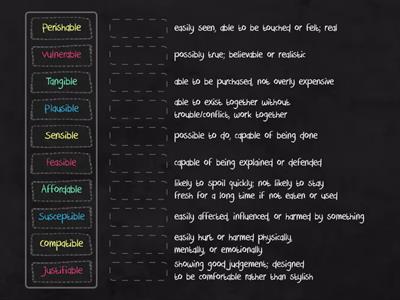 Perishable
Vulnerable
Tangible
Plausible
Sensible
Feasible
Affordable
Susceptible
Compatible
Justifiable
easily seen, able to be touched or felt; real
possibly true; believable or realistic
able to be purchased, not overly expensive
able to exist together without
trouble/conflict, work together
possible to do, capable of being done
capable of being explained or defended
likely to spoil quickly; not likely to stay
fresh for a long time if not eaten or used
easily affected, influenced, or harmed by something
easily hurt or harmed physically,
mentally, or emotionally
showing good judgement; designed
to be comfortable rather than stylish